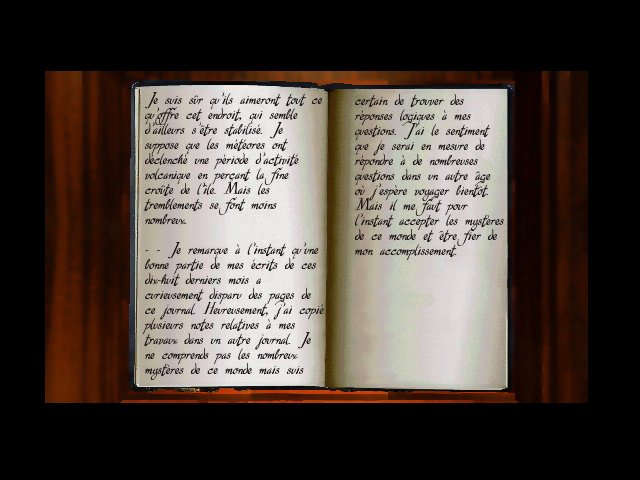 Je suis sûr qu'ils aimeront tout ce
qu'offre cet endroit, qui semble
d'ailleurs s'être stabilisé. Je
suppose que les météores ont
déclenché une période d'activité
volcanique en perçant la fine
croûte de l'île. Mais les
tremblements se font moins
nombreux.
- - Je remarque à l'instant qu'une
bonne partie de mes écrits de ces
dix-huit derniers mois a
curieusement disparu des pages de
ce journal. Heureusement, j'ai copié
plusieurs notes relatives à mes
travaux dans un autre journal. Je
ne comprends pas les nombreux
mystères de ce monde mais suis
certain de trouver des
réponses logiques à mes
questions. J'ai le sentiment
que je serai en mesure de
répondre à de nombreuses
questions dans un autre âge
où j'espère voyager bientôt.
Mais il me faut pour
l'instant accepter les mystères
de ce monde et être fier de
mon accomplissement.